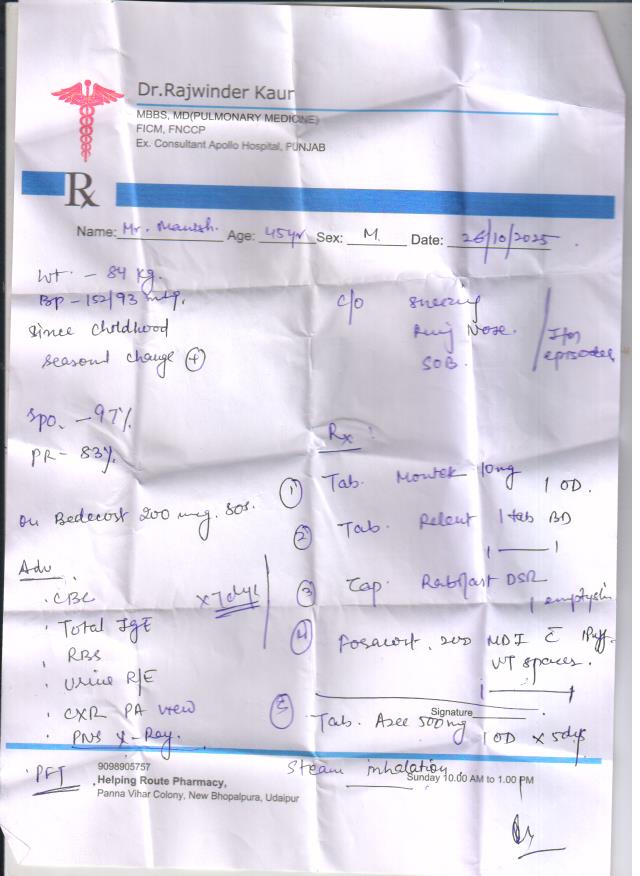 Dr.Rajwinder Kaur
MBBS, MD(PULMONARY MEDICINE)
FICM, FNCCP
Ex. Consultant Apollo Hospital, PUNJAB
Rx
Name: Mr. Manish. Age: 45yr Sex: M. Date: 26/10/2025.
Wt. - 84 kg.
BP - 152/93
since childhood
seasonal change +
c/o sneezing
Nose.
SOB.
episodes
SpO2 - 97%
PR - 83%
on Bedecost 200 mcg. SOS.
Rx :
1 Tab. Montek 10mg 1 OD.
2 Tab. Relent 1 tab BD
1 — 1
3 Cap. Rabifast DSR
1
4 Foracort. 200 MDI c Puff.
WT spacer.
1 — 1
x 7 days
5 Tab. Azee 500mg 1 OD x 5 dys
Steam inhalation
Adv
. CBC
. Total IgE
. RBS
. Urine R/E
. CXR PA view
. PNS X-Ray.
. PFT
Signature
9098905757
Helping Route Pharmacy,
Panna Vihar Colony, New Bhopalpura, Udaipur
Sunday 10.00 AM to 1.00 PM